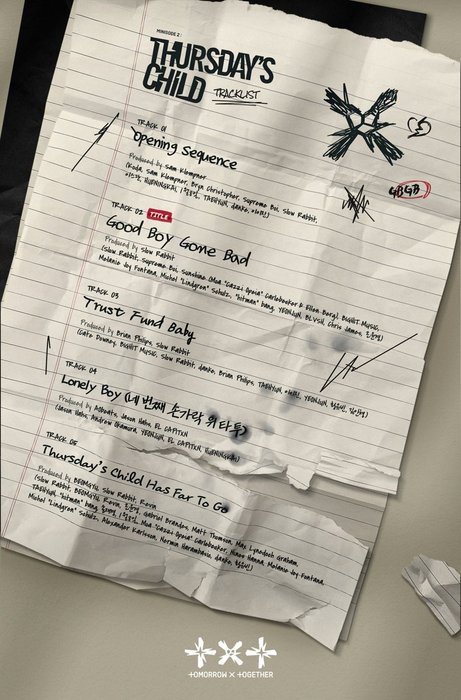 MINISODE 2:
THURSDAY'S
CHILD
TRACKLIST
TRACK 01
Opening Sequence
Produced by Sam Klempner
(Koda, Sam Klempner, Bryn Christopher, Supreme Boi, Slow Rabbit,
HUENINGKAI, TAEHYUN, danke,
GBGB
TRACK 02 TITLE
Good Boy Gone Bad
Produced by Slow Rabbit
(Slow Rabbit, Supreme Boi, Sunshine, Moa "Cazzi Opeia" Carlebecker & Ellen Berg), BIGHIT MUSIC,
Melanie Joy Fontana, Michel "Lindgren" Schulz, "hitman" bang, YEONJUN, BLVSH, Chris James,
TRACK 03
Trust Fund Baby
Produced by Brian Phillips, Slow Rabbit
BIGHIT MUSIC, Slow Rabbit, danke, Brian Phillips, TAEHYUN, YEONJUN,
TRACK 04
Lonely Boy (네 번째 손가락 위 타투)
Produced by EL CAPITXN
(Jason Hahs, Andrew Okamura, YEONJUN, EL CAPITXN, HUENINGKAI)
TRACK 05
Thursday's Child Has Far To Go
Produced by BEOMGYU, Slow Rabbit, Revin
(Slow Rabbit, BEOMGYU, Revin, Gabriel Brandes, Matt Thomson, Max Lynedoch Graham,
TAEHYUN, "hitman" bang, Moa "Cazzi Opeia" Carlebecker, Ninos Hanna, Melanie Joy Fontana,
Michel "Lindgren" Schulz, Alexander Karlsson, danke,
TOMORROW X TOGETHER